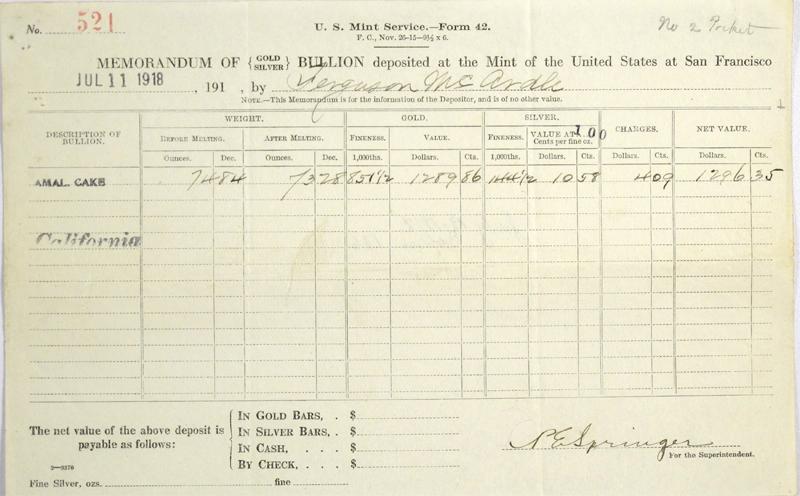 No. 521
U. S. Mint Service.—Form 42.
F. C., Nov. 26-15—9½ x 6.
No 2 Pocket
MEMORANDUM OF {GOLD SILVER} BULLION deposited at the Mint of the United States at San Francisco
JUL 11 1918, 191 , by Ferguson McArdle
NOTE.—This Memorandum is for the information of the Depositor, and is of no other value.
DESCRIPTION OF BULLION. WEIGHT. GOLD. SILVER. CHARGES. NET VALUE.
BEFORE MELTING. AFTER MELTING. FINENESS. VALUE. FINENESS. VALUE AT 1.00 Cents per fine oz.
Ounces. Dec. Ounces. Dec. 1,000ths. Dollars. Cts. 1,000ths. Dollars. Cts. Dollars. Cts. Dollars. Cts.
AMAL. CAKE 74 84 73 28 851½ 1289 86 144½ 10 58 4 09 1296 35
California
The net value of the above deposit is payable as follows:
IN GOLD BARS, . $
IN SILVER BARS, . $
IN CASH, . . . $
BY CHECK, . . . $
N E Springer
For the Superintendent.
2—9370
Fine Silver, ozs. fine